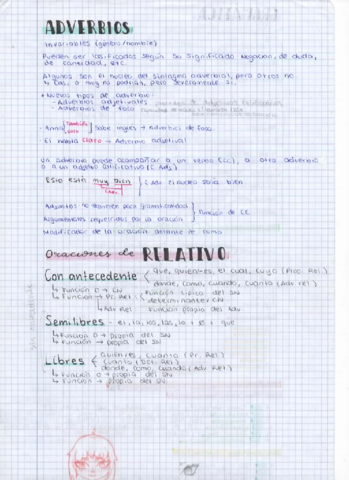 ADVERBIOS
Invariables (género/nombre)
Pueden ser clasificados según su significado negación, de duda,
de cantidad, etc.
Algunos son el núcleo del sintagma adverbial, pero otros no
lo son, o muy no podrían, pero seriamente sí.
* Nuevos tipos de adverbio:
- Adverbios adjetivales
- Adverbios de foco
- Anna sabe inglés → Adverbios de foco
El menía claro → Adverbio adjetival
Un adverbio puede acompañar a un verbo (CC), a otro adverbio
o a un adjetivo calificativo (C Adj)
Eso está muy bien ( C Adj el núcleo sería bien
Adjuntos no requieren para gramaticalidad
Argumentos requeridos por la oración
función de CC
Modificador de la oración delante de coma
Oraciones de RELATIVO
Con antecedente
que, quien/es, el cual, cuyo (Pron Rel)
donde, como, cuando, cuanto (Adv rel)
↳ Función O → CN
↳ Función → Pr. Rel
Función típica del SN
determinante CN
↳ Adv Rel
Función propia del adv
Semilibres - el, la, los, las, lo + ø + que
↳ Función O → propia del SN
↳ Función → propia del SN
Libres
Quien/es, cuanto (Pr. Rel)
cuanto (Det. Rel)
donde, como, cuando (Adv Rel)
↳ Función O → propia del SN
↳ Función → propia del SN